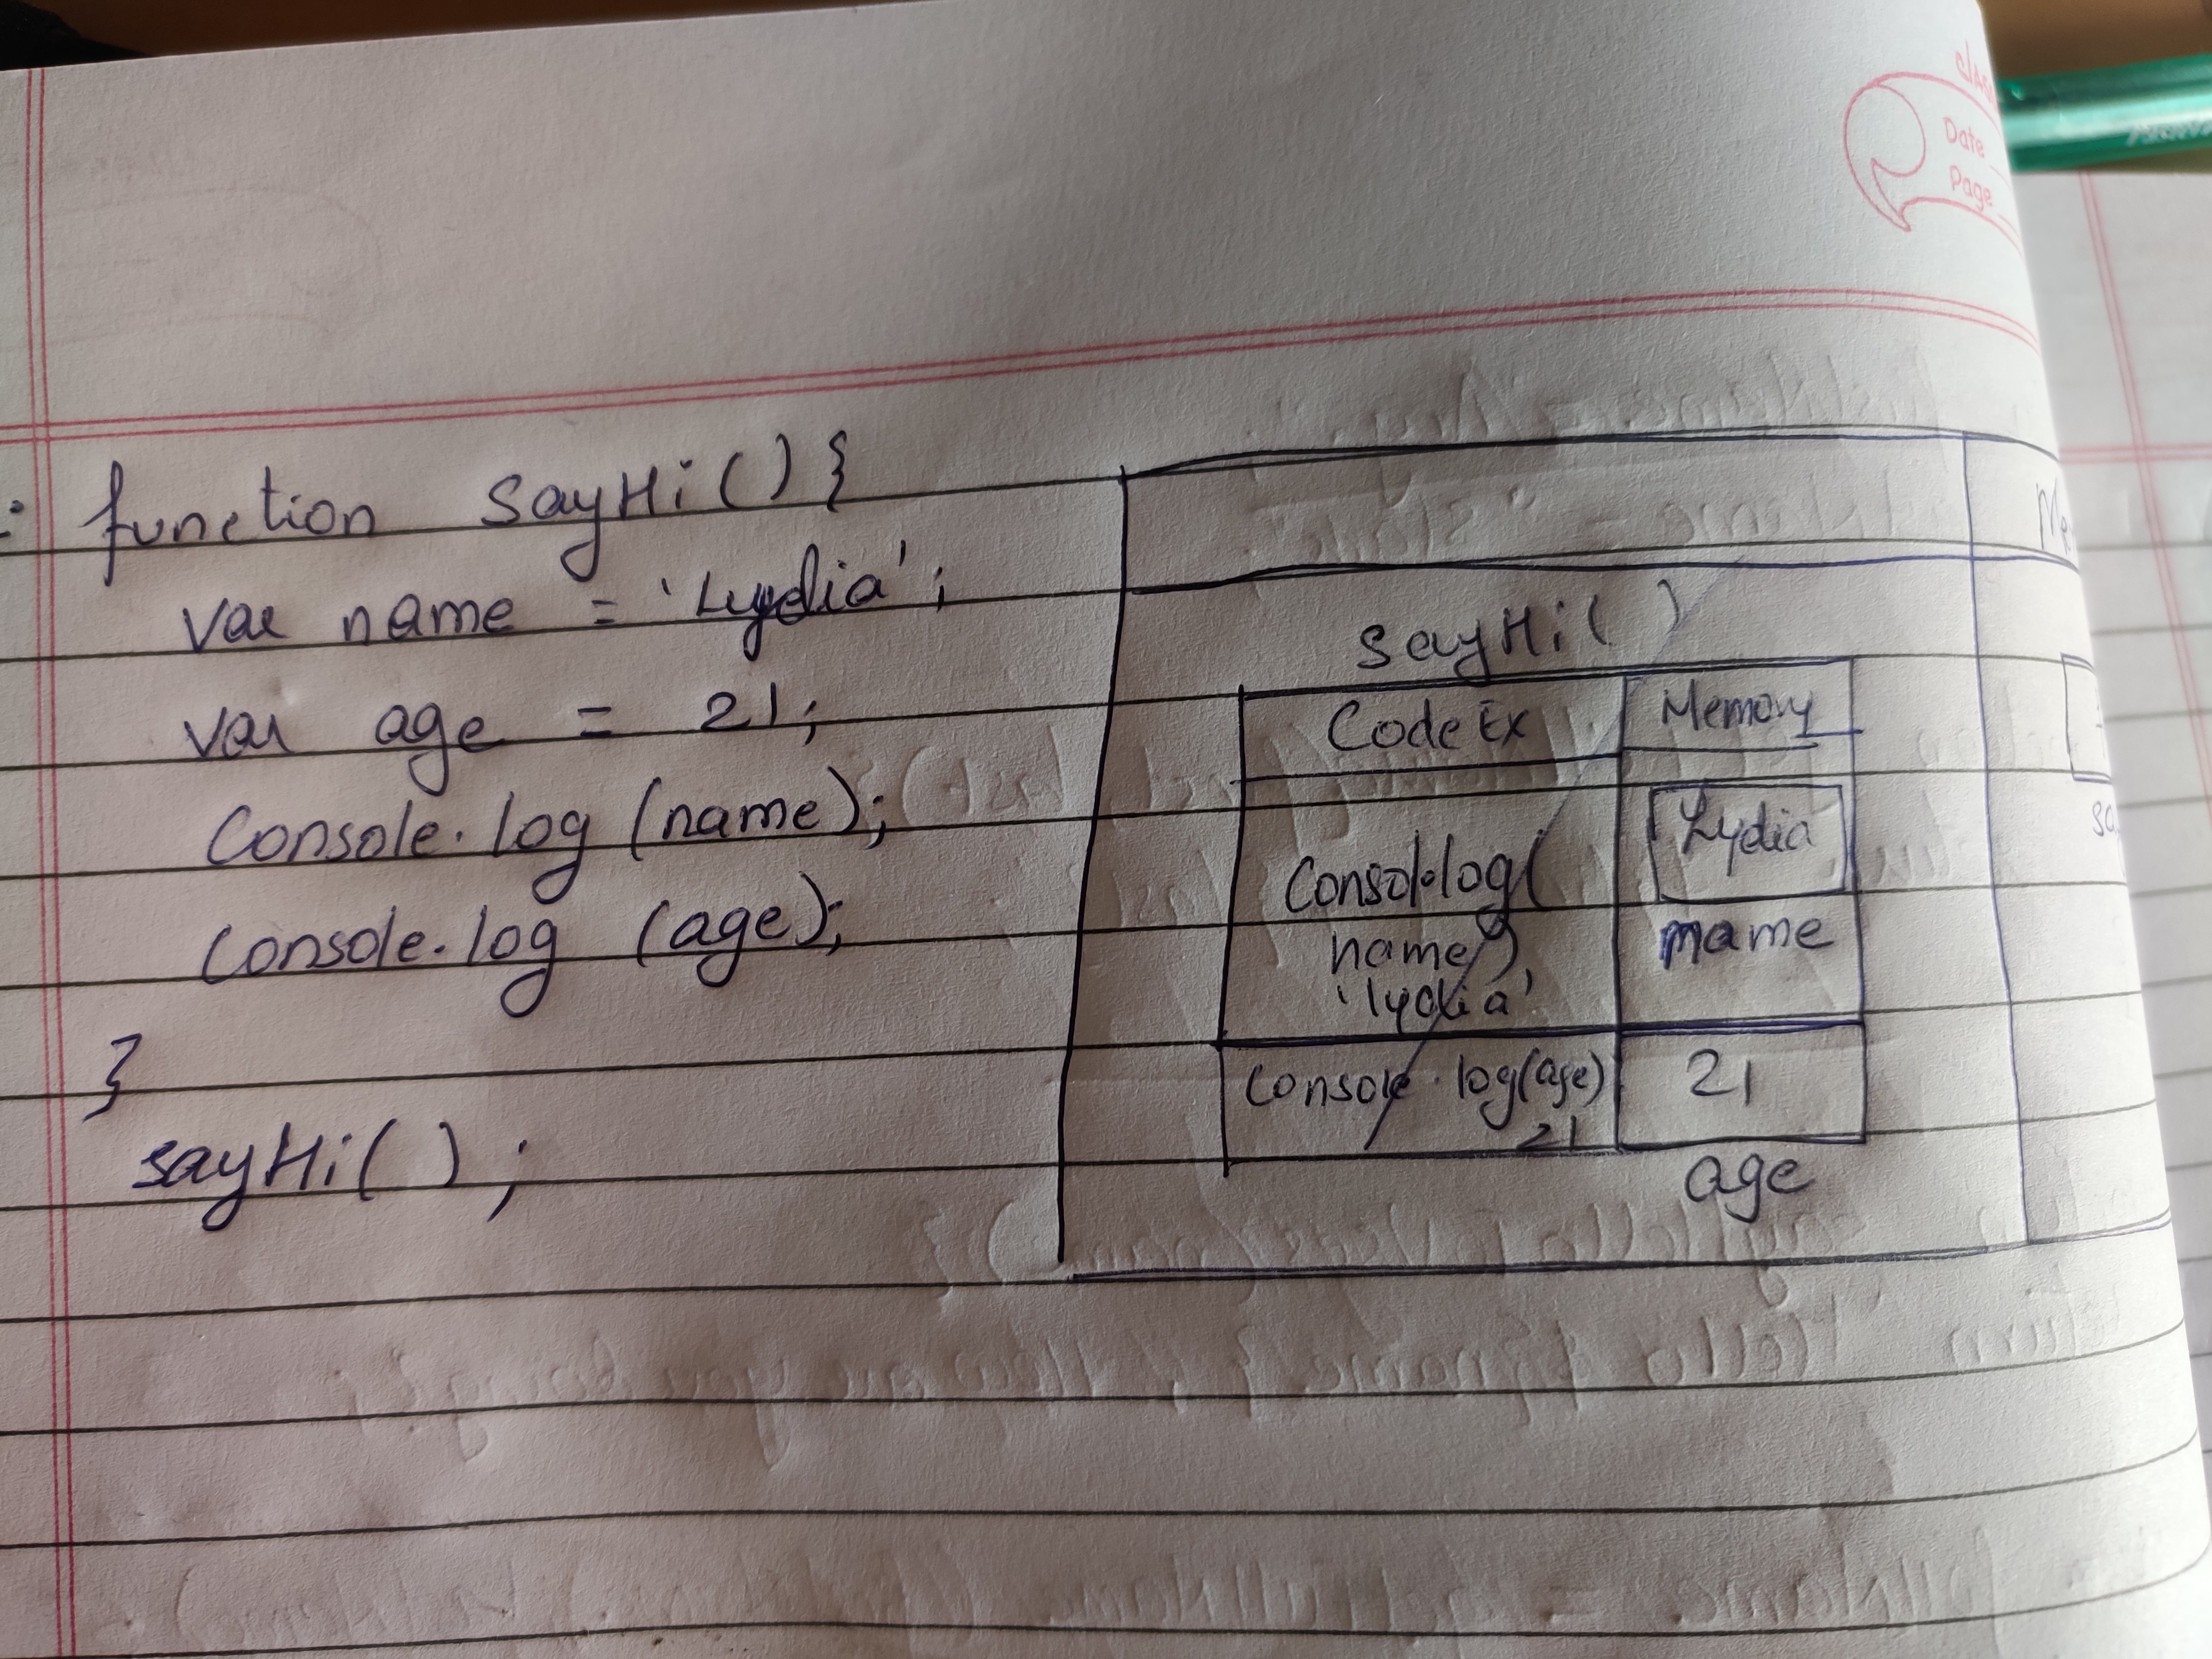 function sayHi() {
var name = 'Lydia';
var age = 21;
Console.log (name);
Console.log (age);
}
sayHi();
sayHi()
Code Ex
Memory
Console.log(
name)
'lydia'
Lydia
name
Console.log(age)
21
21
age
Date
Page